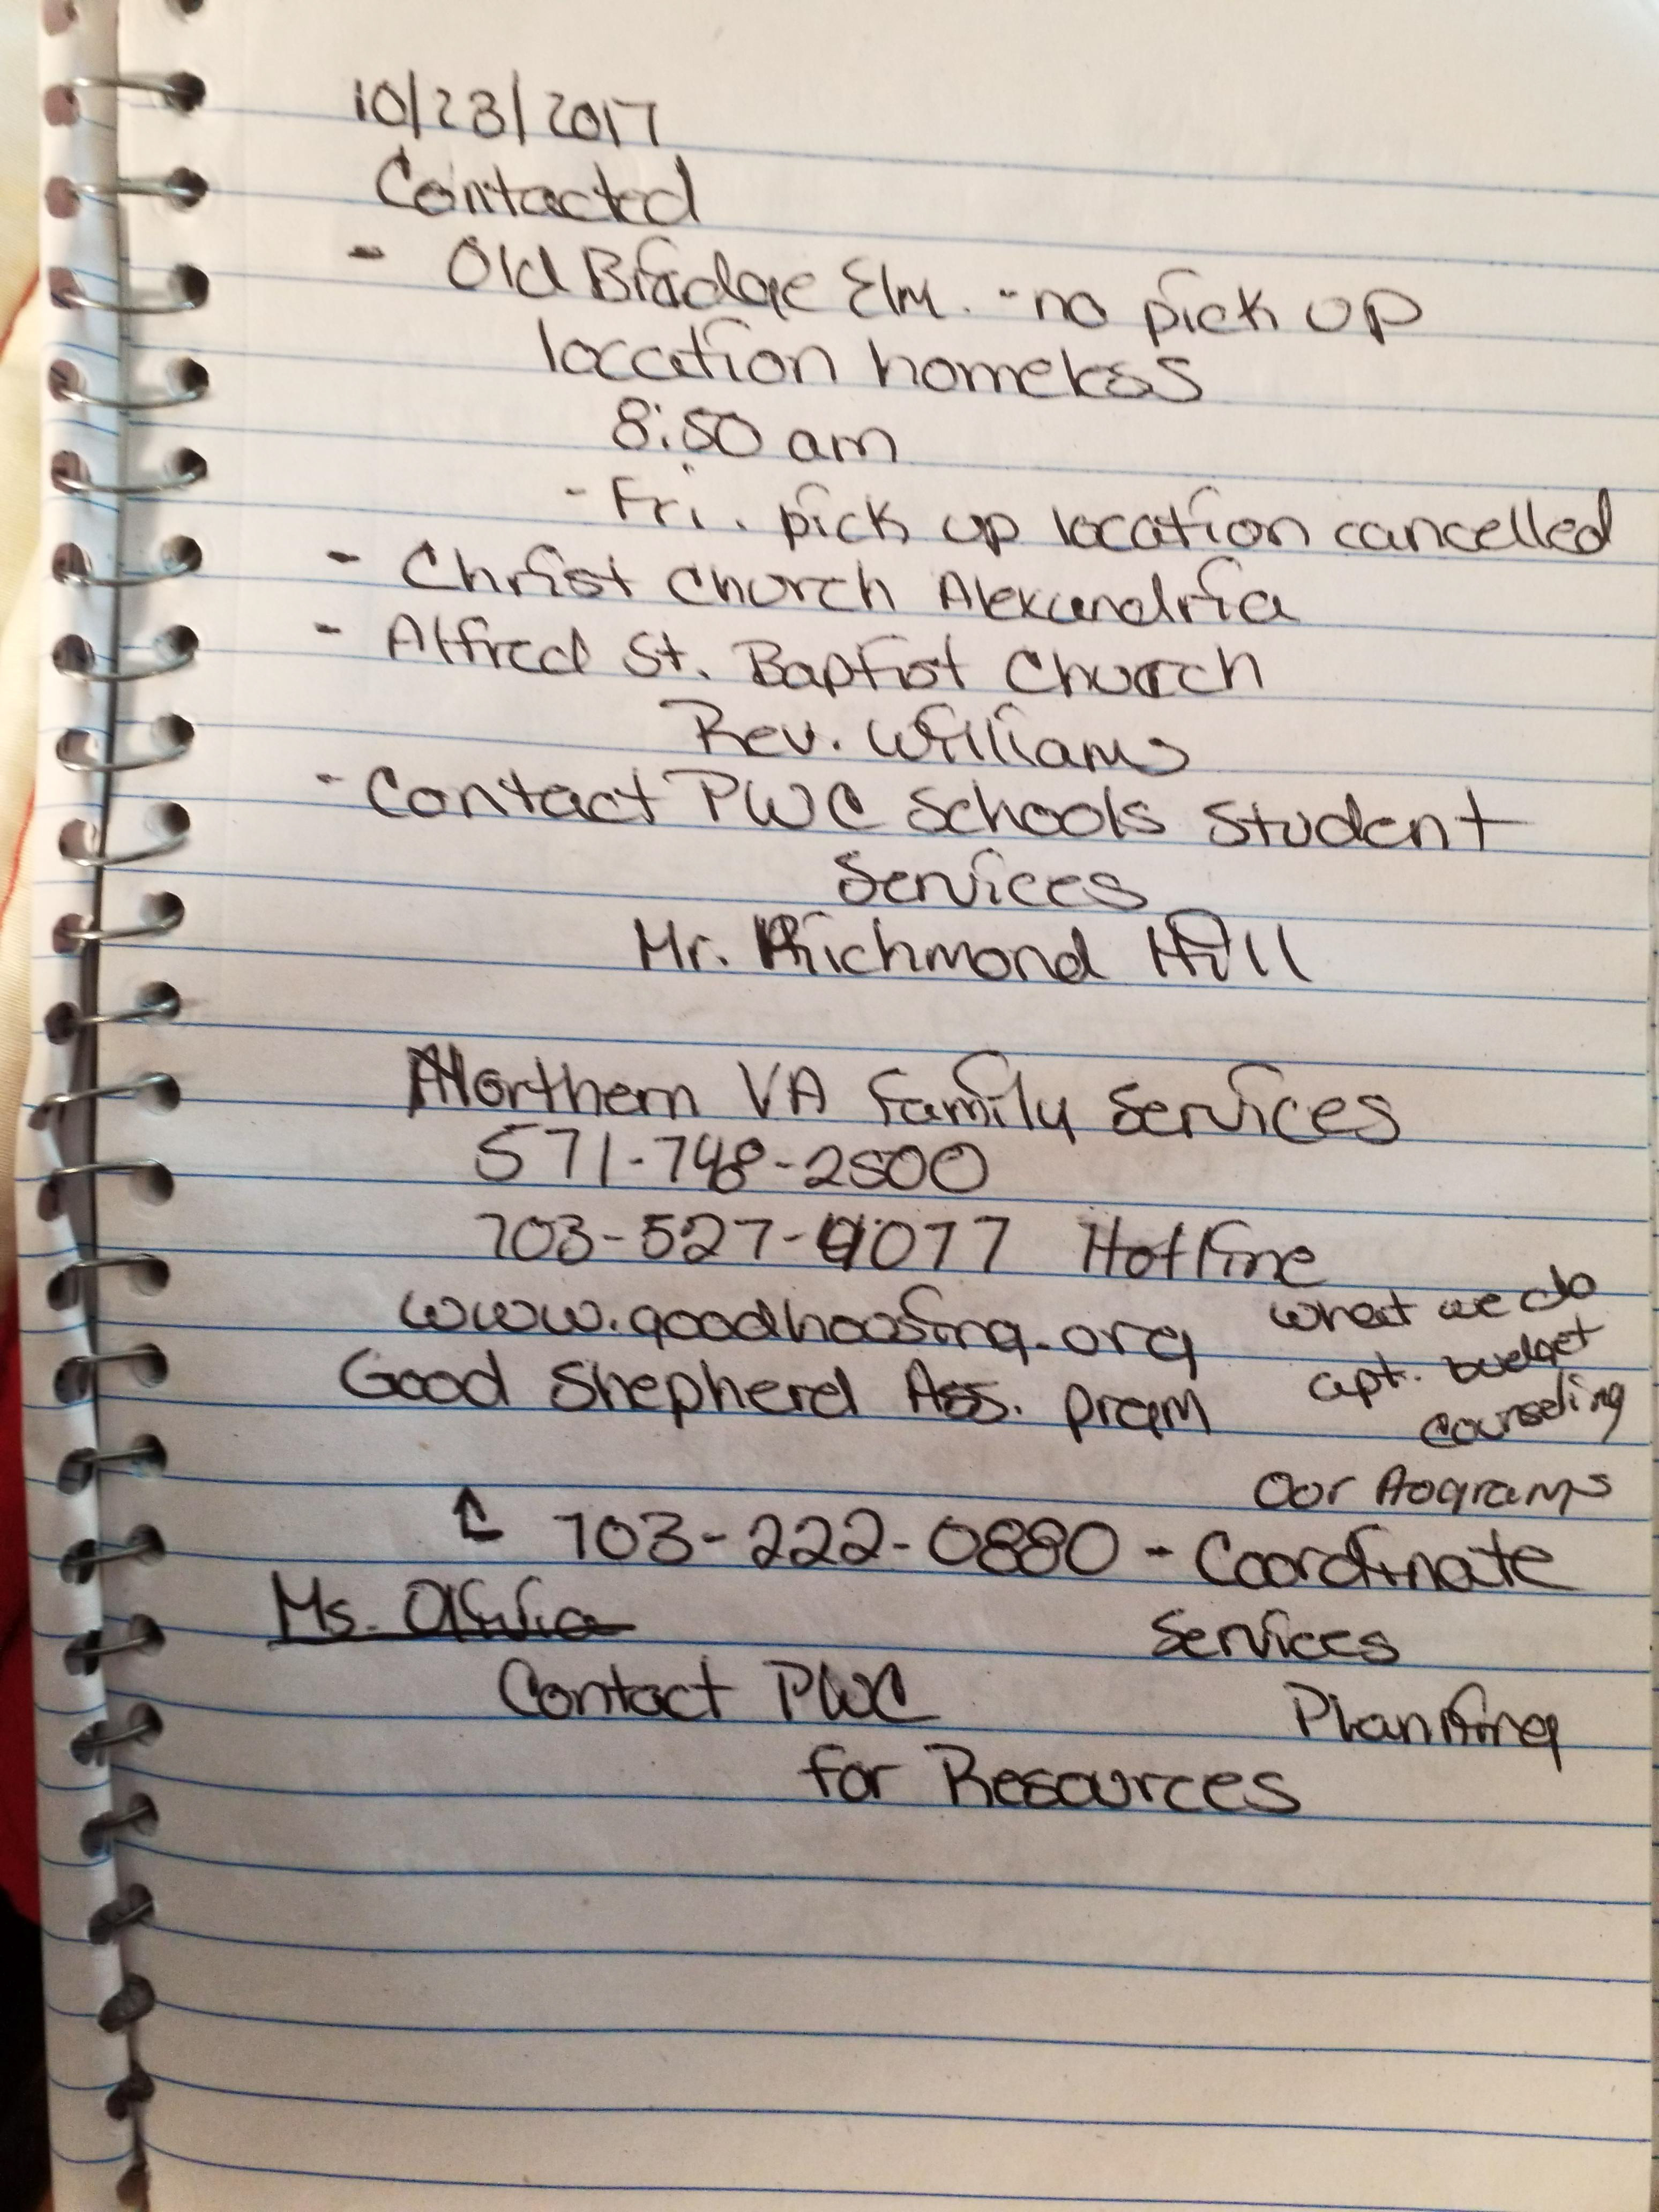 10/23/2017
Contacted
- Old Bridge Elm. - no pick up
location homeless
8:50 am
- Fri. pick up location cancelled
- Christ Church Alexandria
- Alfred St. Baptist Church
Rev. Williams
- Contact PWC Schools Student
Services
Mr. Richmond Hill
Northern VA Family Services
571-748-2500
703-527-4077 Hotline
www.goodhousing.org what we do
Good Shepherd Ass. prgm apt. budget
counseling
Our Programs
703-222-0880 - Coordinate
Ms. Olivia Services
Contact PWC Planning
for Resources